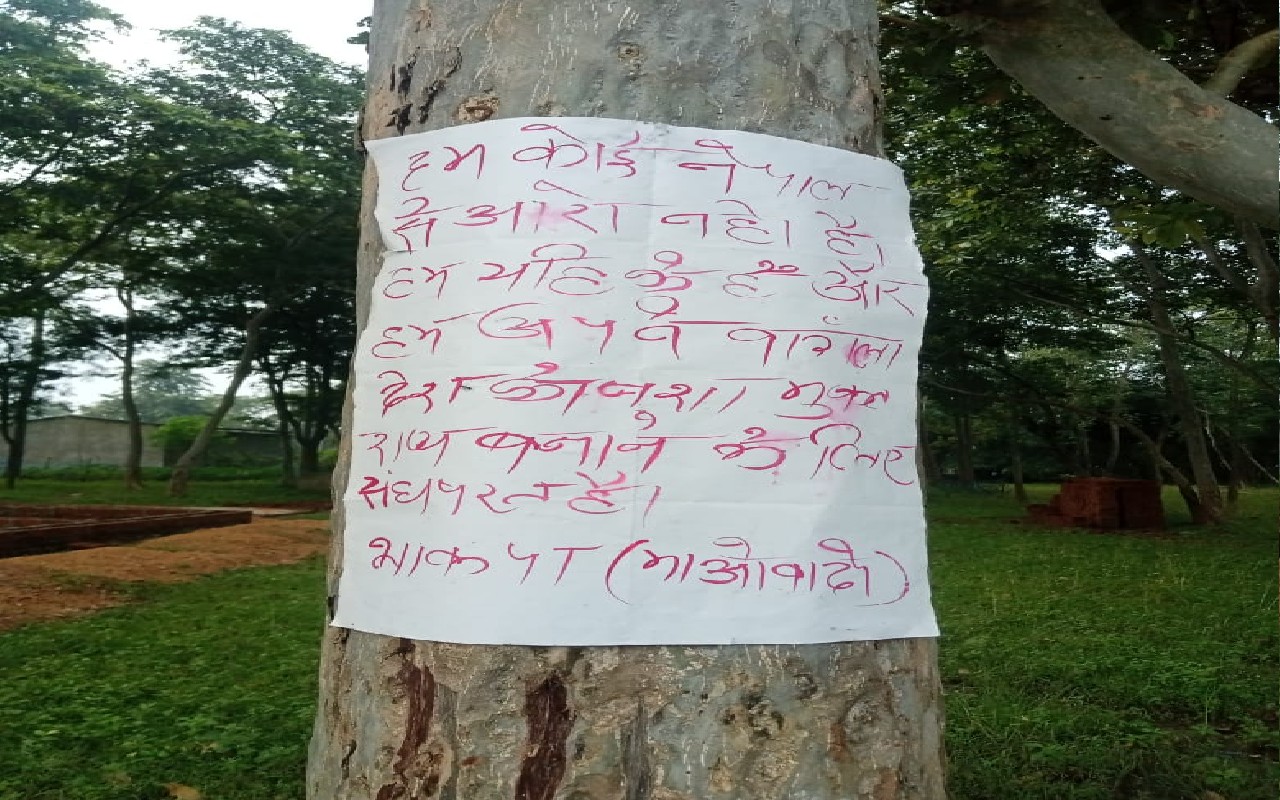 हम कोई नेपाल
से आरो नहीं है।
हम यहि के हैं और
हम अपने
देश को नशा मुक्त
राज्य बनाने के लिए
संघपरत है।
भाकपा (माओवादी)